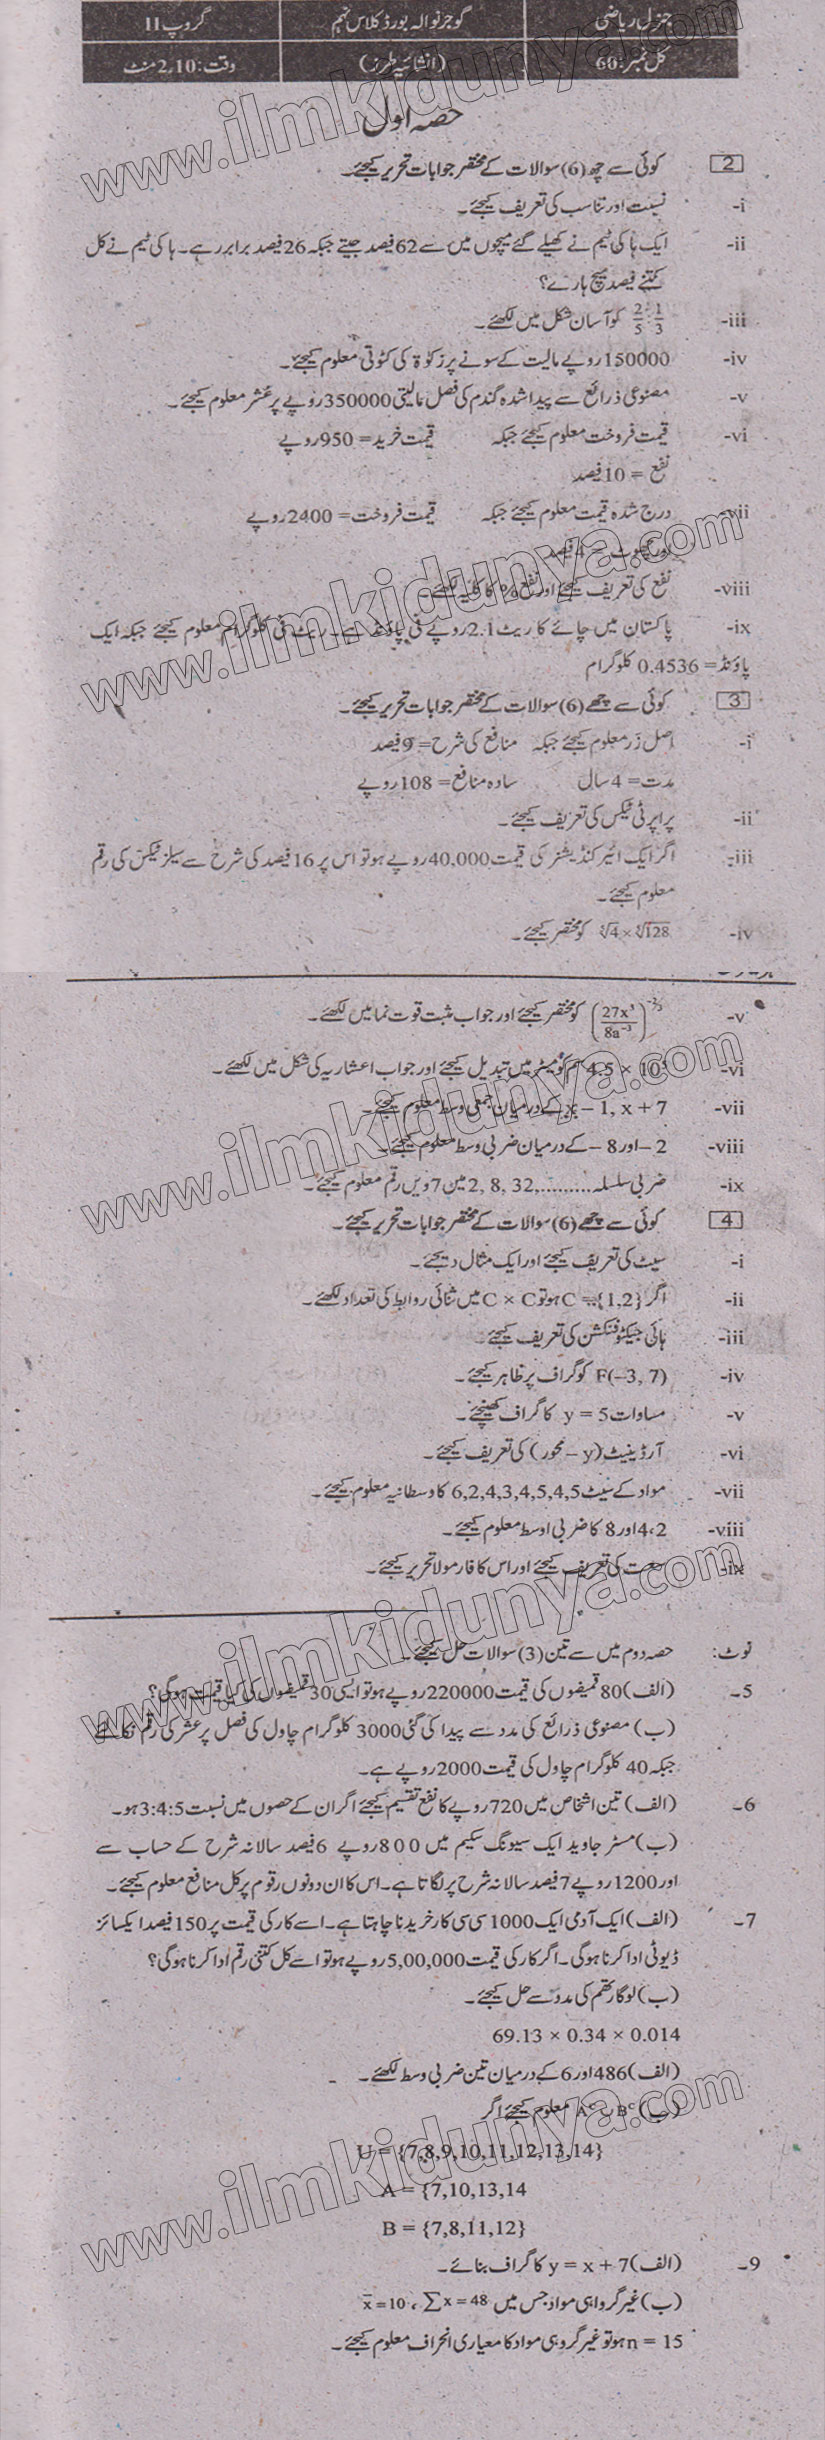 جنرل ریاضی گوجرنوالہ بورڈ کلاس نہم گروپ II
کل نمبر: 60 (انشائیہ طرز) وقت: 2.10 منٹ
حصہ اول
2 کوئی سے چھ (6) سوالات کے مختصر جوابات تحریر کیجئے۔
i- نسبت اور تناسب کی تعریف کیجئے۔
ii- ایک ہاکی ٹیم نے کھیلے گئے میچوں میں سے 62 فیصد جیتے جبکہ 26 فیصد برابر رہے۔ ہاکی ٹیم نے کل
کتنے فیصد میچ ہارے؟
iii- 2/5 : 1/3 کو آسان شکل میں لکھئے۔
iv- 150000 روپے مالیت کے سونے پر زکوٰۃ کی کٹوتی معلوم کیجئے۔
v- مصنوعی ذرائع سے پیدا شدہ گندم کی فصل مالیتی 350000 روپے پر عشر معلوم کیجئے۔
vi- قیمت فروخت معلوم کیجئے جبکہ قیمت خرید = 950 روپے
نفع = 10 فیصد
vii- درج شدہ قیمت معلوم کیجئے جبکہ قیمت فروخت = 2400 روپے
اور چھوٹ = 4 فیصد
viii- نفع کی تعریف کیجئے اور نفع % کا کلیہ لکھئے۔
ix- پاکستان میں چائے کا ریٹ 2.1 روپے فی پاؤنڈ ہے۔ ریٹ فی کلوگرام معلوم کیجئے جبکہ ایک
پاؤنڈ = 0.4536 کلوگرام
3 کوئی سے چھے (6) سوالات کے مختصر جوابات تحریر کیجئے۔
i- اصل زر معلوم کیجئے جبکہ منافع کی شرح = 9 فیصد
مدت = 4 سال سادہ منافع = 108 روپے
ii- پراپرٹی ٹیکس کی تعریف کیجئے۔
iii- اگر ایک ائیر کنڈیشنر کی قیمت 40,000 روپے ہو تو اس پر 16 فیصد کی شرح سے سیلز ٹیکس کی رقم
معلوم کیجئے۔
iv- √4 × √128 کو مختصر کیجئے۔
v- (27x³/8a⁻³)^(-2/3) کو مختصر کیجئے اور جواب مثبت قوت نما میں لکھئے۔
vi- 4.5 × 10³ کم کو میٹر میں تبدیل کیجئے اور جواب اعشاریہ کی شکل میں لکھئے۔
vii- x – 1, x + 7 کے درمیان جمعی وسط معلوم کیجئے۔
viii- 2– اور 8– کے درمیان ضربی وسط معلوم کیجئے۔
ix- ضربی سلسلہ 2, 8, 32,.......... میں 7 ویں رقم معلوم کیجئے۔
4 کوئی سے چھے (6) سوالات کے مختصر جوابات تحریر کیجئے۔
i- سیٹ کی تعریف کیجئے اور ایک مثال دیجئے۔
ii- اگر C = {1,2} ہو تو C × C میں ثنائی روابط کی تعداد لکھئے۔
iii- بائی جیکٹو فنکشن کی تعریف کیجئے۔
iv- F(–3, 7) کو گراف پر ظاہر کیجئے۔
v- مساوات y = 5 کا گراف کھینچئے۔
vi- آرڈینیٹ (y – محور) کی تعریف کیجئے۔
vii- مواد کے سیٹ 6,2,4,3,4,5,4,5 کا وسطانیہ معلوم کیجئے۔
viii- 2، 4 اور 8 کا ضربی اوسط معلوم کیجئے۔
ix- سعت کی تعریف کیجئے اور اس کا فارمولا تحریر کیجئے۔
نوٹ: حصہ دوم میں سے تین (3) سوالات حل کیجئے۔
5۔ (الف) 80 قمیضوں کی قیمت 220000 روپے ہو تو ایسی 30 قمیضوں کی کیا قیمت ہوگی؟
(ب) مصنوعی ذرائع کی مدد سے پیدا کی گئی 3000 کلوگرام چاول کی فصل پر عشر کی رقم نکالئے
جبکہ 40 کلوگرام چاول کی قیمت 2000 روپے ہے۔
6۔ (الف) تین اشخاص میں 720 روپے کا نفع تقسیم کیجئے اگر ان کے حصوں میں نسبت 3:4:5 ہو۔
(ب) مسٹر جاوید ایک سیونگ سکیم میں 800 روپے 6 فیصد سالانہ شرح کے حساب سے
اور 1200 روپے 7 فیصد سالانہ شرح پر لگاتا ہے۔ اس کا ان دونوں رقوم پر کل منافع معلوم کیجئے۔
7۔ (الف) ایک آدمی ایک 1000 سی سی کار خریدنا چاہتا ہے۔ اسے کار کی قیمت پر 150 فیصد ایکسائز
ڈیوٹی ادا کرنا ہوگی۔ اگر کار کی قیمت 5,00,000 روپے ہو تو اسے کل کتنی رقم ادا کرنا ہوگی؟
(ب) لوگارتھم کی مدد سے حل کیجئے۔
69.13 × 0.34 × 0.014
(الف) 486 اور 6 کے درمیان تین ضربی وسط لکھئے۔
(ب) Aᶜ Bᶜ معلوم کیجئے اگر
U = {7,8,9,10,11,12,13,14}
A = {7,10,13,14
B = {7,8,11,12}
9۔ (الف) y = x + 7 کا گراف بنائے۔
(ب) غیر گروہی مواد جس میں x̄ = 10 ، ∑x = 48
n = 15 ہو تو غیر گروہی مواد کا معیاری انحراف معلوم کیجئے۔
www.ilmkidunya.com
www.ilmkidunya.com
www.ilmkidunya.com
www.ilmkidunya.com
www.ilmkidunya.com